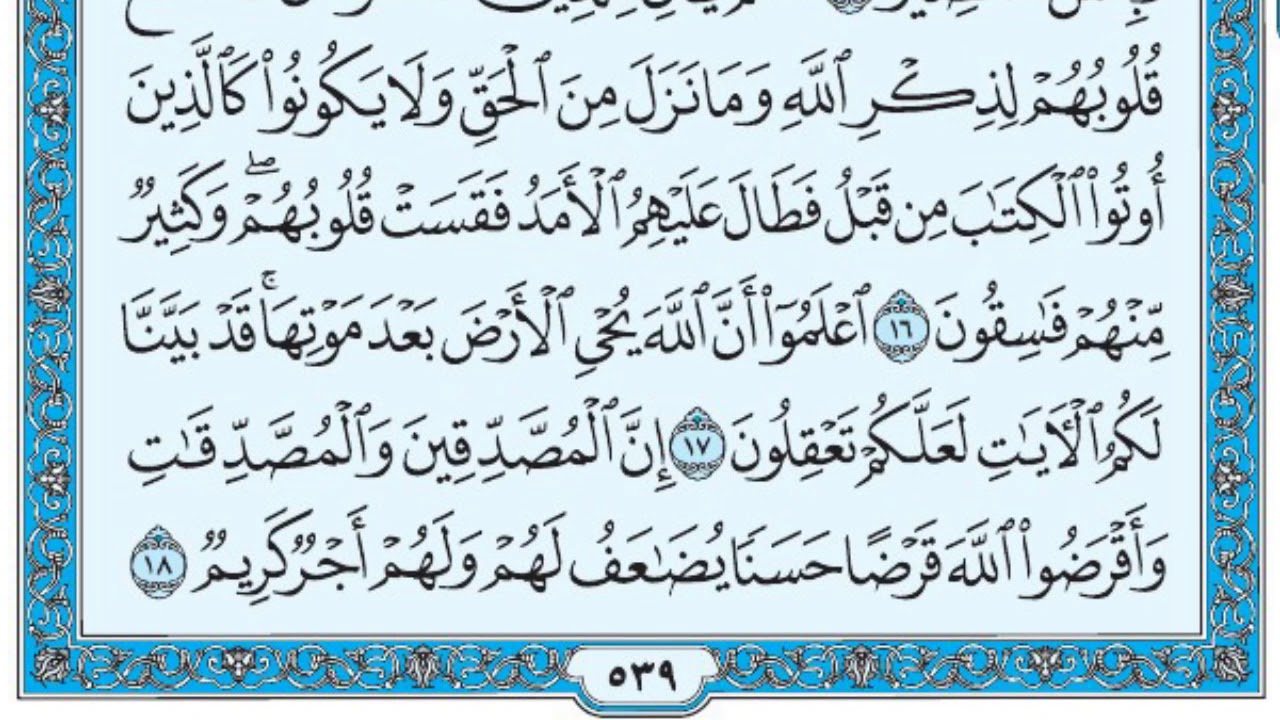 قُلُوبُهُمْ لِذِكْرِ ٱللَّهِ وَمَا نَزَلَ مِنَ ٱلْحَقِّ وَلَا يَكُونُوا۟ كَٱلَّذِينَ
أُوتُوا۟ ٱلْكِتَٰبَ مِن قَبْلُ فَطَالَ عَلَيْهِمُ ٱلْأَمَدُ فَقَسَتْ قُلُوبُهُمْ ۖ وَكَثِيرٌ
مِّنْهُمْ فَٰسِقُونَ ١٦ ٱعْلَمُوٓا۟ أَنَّ ٱللَّهَ يُحْىِ ٱلْأَرْضَ بَعْدَ مَوْتِهَا ۚ قَدْ بَيَّنَّا
لَكُمُ ٱلْـَٔايَٰتِ لَعَلَّكُمْ تَعْقِلُونَ ١٧ إِنَّ ٱلْمُصَّدِّقِينَ وَٱلْمُصَّدِّقَٰتِ
وَأَقْرَضُوا۟ ٱللَّهَ قَرْضًا حَسَنًا يُضَٰعَفُ لَهُمْ وَلَهُمْ أَجْرٌ كَرِيمٌ ١٨
٥٣٩